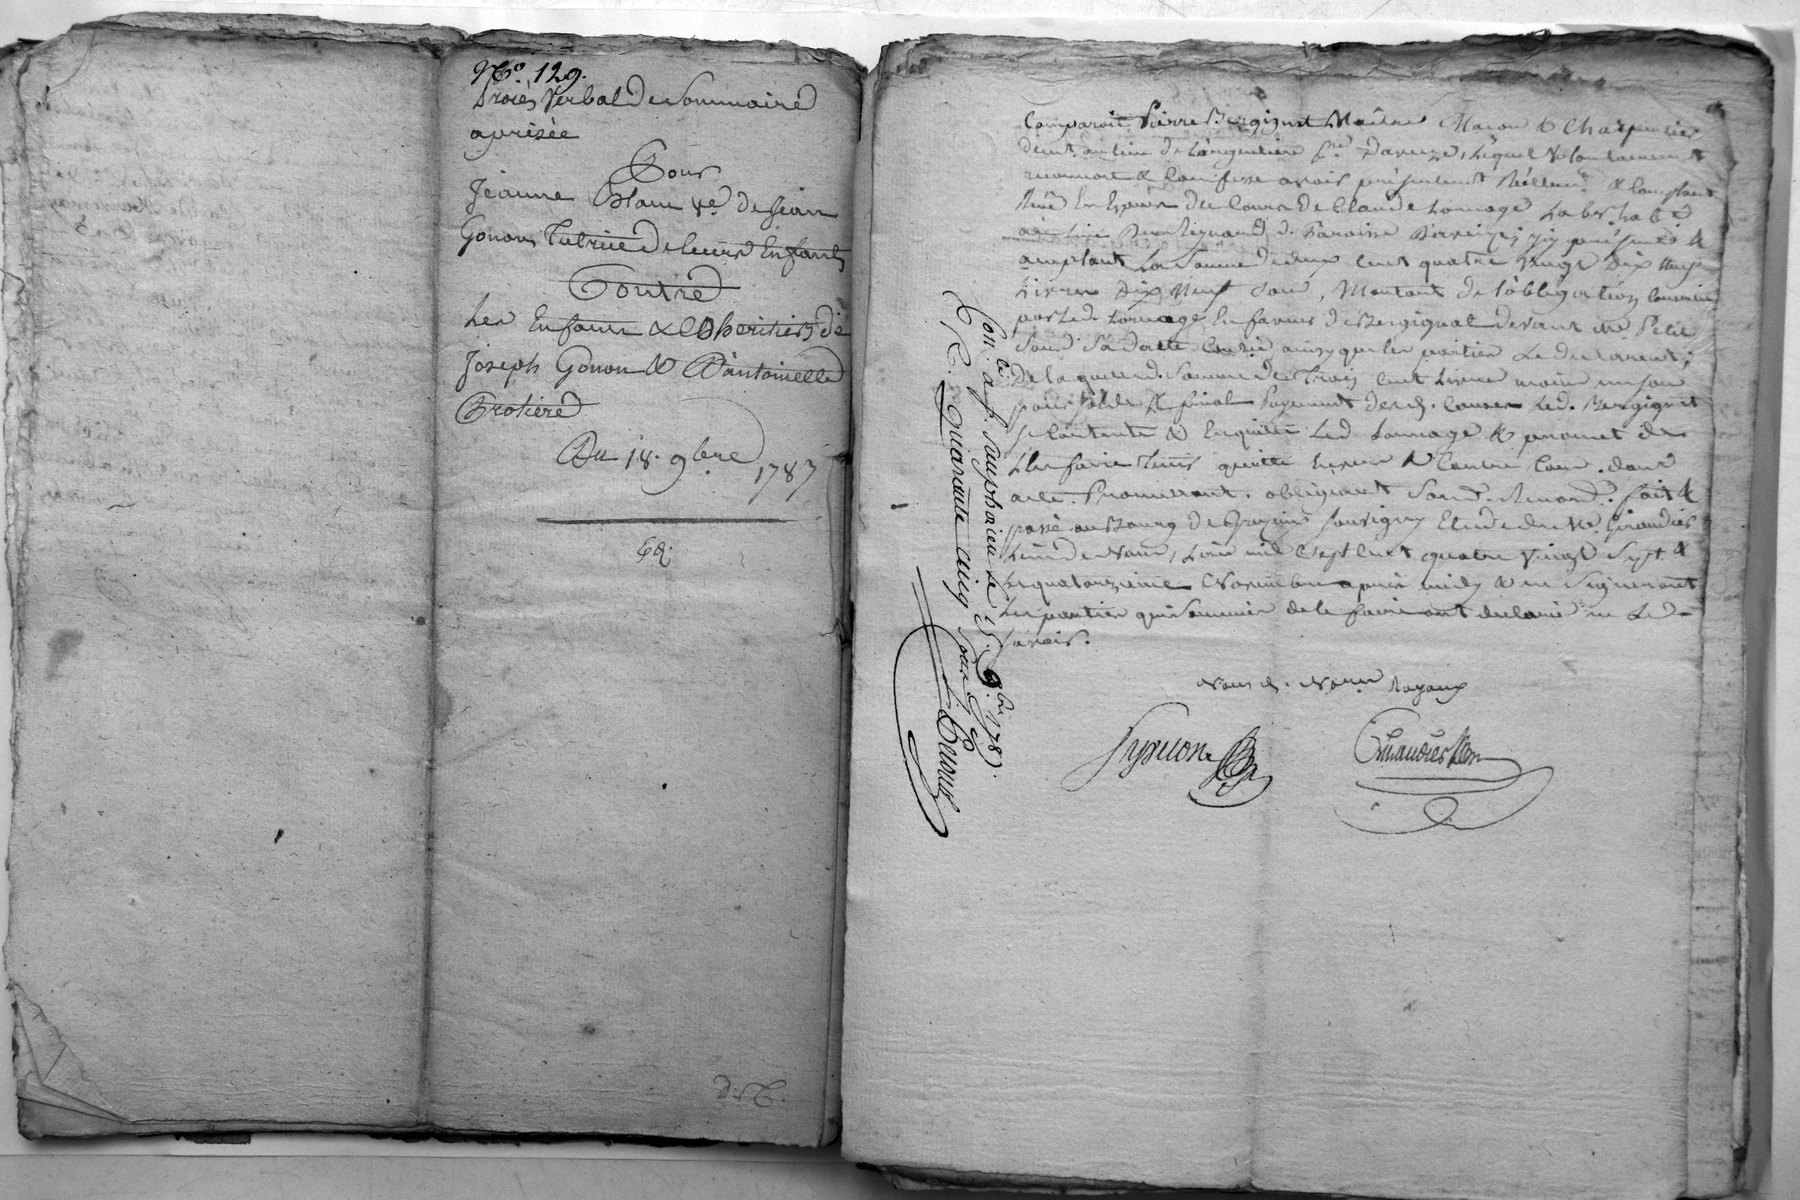 No. 129.
Procès Verbal de Sommaire
aprisée
Pour
Jeanne Blanc ve. de Jean
Gonon Tutrice de leurs Enfants
Contre
Les Enfants & Cohéritiers de
Joseph Gonon & D'antoinette
Brotiere
Du 18. 9bre 1787
Comparoit Pierre Bergignat Maître Maçon & Charpentier
demt. au lieu de L'argentiere psse. Daveize, Lequel volontairement
reconnoit & Confesse avoir présentement Réellemt. & Comptant
Reçu En Espèces de Cours de Claude Lornage Labr. habt.
au lieu parroisse Daveize; icy présent &
acceptant La Somme de deux Cent quatre vingt Dix Neuf
Livres Dix Neuf Sous, Montant de L'obligation Consentie
par Led. Lornage En faveur de Bergignat devant me. Petit
Sous Sa datte Controlé ainsy que les parties Le declarent;
De laquelle d. Somme de Trois Cent Livres moins un Sou
pour Solde & final Payement des d. Causes Led. Bergignat
Se Contente & En quitte Led Lornage & promet de
L'En faire Tenir quitte Envers & Contre Tous. dont
acte. Promettant. obligeant Soumt. Renonct. fait &
passé au Bourg de Grezieu Souvigny Etude de me. Giraudier
L'un de nous, L'an mil Sept Cent quatre vingt Sept &
Le quatorzieme Novembre après midy & ne Signeront
Les parties qui Sommées de le faire ont declaré ne Le
Savoir.
Nous d. Notres Royaux
Giraudier
Con. le 15. 9bre 1787.
R. quarante cinq Sous